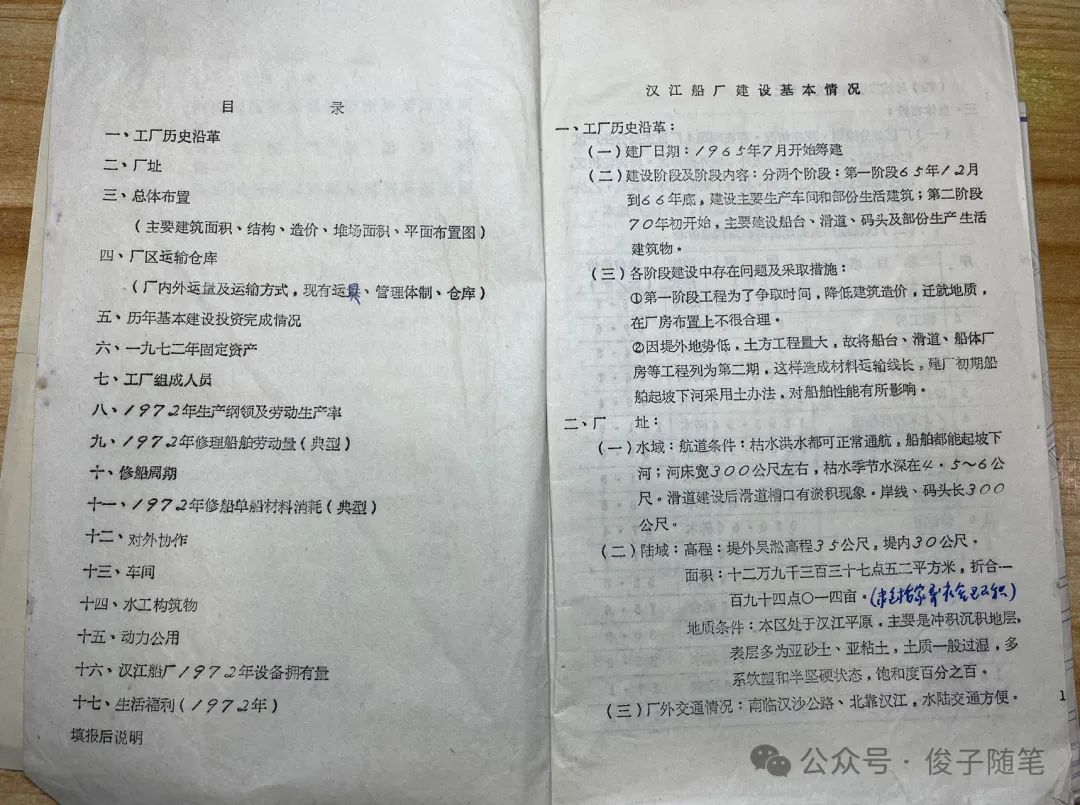 目 录
一、工厂历史沿革
二、厂址
三、总体布置
(主要建筑面积、结构、造价、堆场面积、平面布置图)
四、厂区运输仓库
(厂内外运量及运输方式，现有运具、管理体制、仓库)
五、历年基本建设投资完成情况
六、一九七二年固定资产
七、工厂组成人员
八、1972年生产纲领及劳动生产率
九、1972年修理船舶劳动量(典型)
十、修船周期
十一、1972年修船单船材料消耗(典型)
十二、对外协作
十三、车间
十四、水工构筑物
十五、动力公用
十六、汉江船厂1972年设备拥有量
十七、生活福利(1972年)
填报后说明
汉江船厂建设基本情况
一、工厂历史沿革：
(一)建厂日期：1965年7月开始筹建
(二)建设阶段及阶段内容：分两个阶段：第一阶段65年12月
到66年底，建设主要生产车间和部份生活建筑；第二阶段
70年初开始，主要建设船台、滑道、码头及部份生产生活
建筑物。
(三)各阶段建设中存在问题及采取措施：
①第一阶段工程为了争取时间，降低建筑造价，迁就地质，
在厂房布置上不很合理。
②因堤外地势低，土方工程量大，故将船台、滑道、船体厂
房等工程列为第二期，这样造成材料运输线长，建厂初期船
舶起坡下河采用土办法，对船舶性能有所影响。
二、厂 址：
(一)水域：航道条件：枯水洪水都可正常通航，船舶都能起坡下
河；河床宽300公尺左右，枯水季节水深在4·5～6公
尺。滑道建设后滑道槽口有淤积现象。岸线、码头长300
公尺。
(二)陆域：高程：堤外吴淞高程35公尺，堤内30公尺。
面积：十二万九千三百三十七点五二平方米，折合一
百九十四点〇一四亩。(未包括家属宿舍
地质条件：本区处于汉江平原，主要是冲积沉积地层，
表层多为亚砂土、亚粘土，土质一般过湿，多
系软塑和半坚硬状态，饱和度百分之百。
(三)厂外交通情况：南临汉沙公路、北靠汉江，水陆交通方便。
1
公众号·俊子随笔